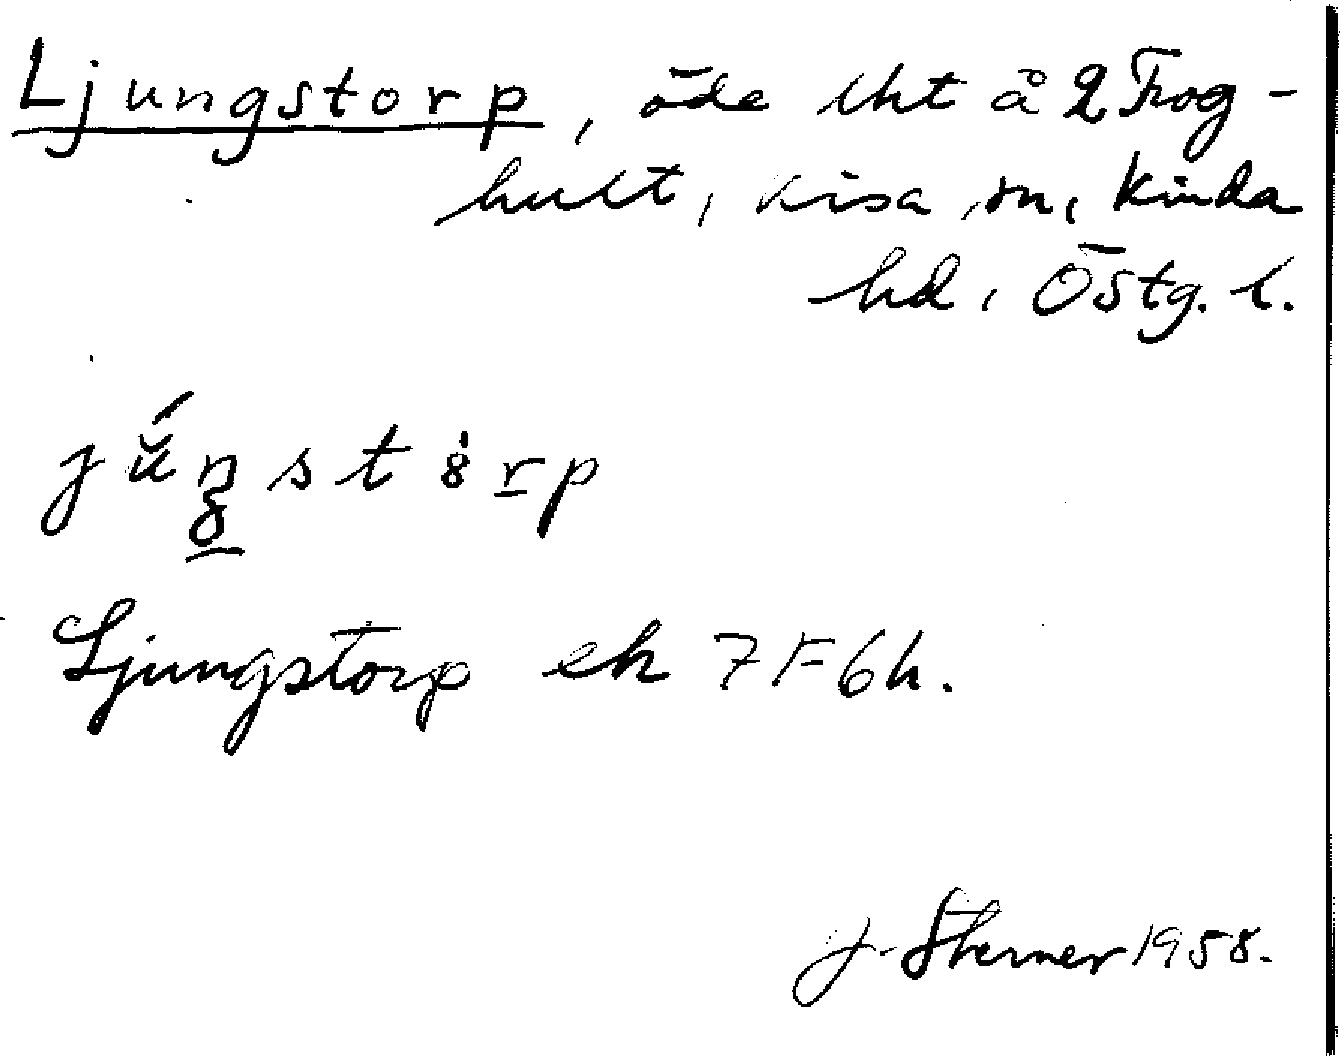 Ljungstorp, öde lht å 2 Frog-
hult, Kisa sn, Kinda
hd, Östg. l.
Ljungstorp ek 7F6h.
J. Sterner 1958.